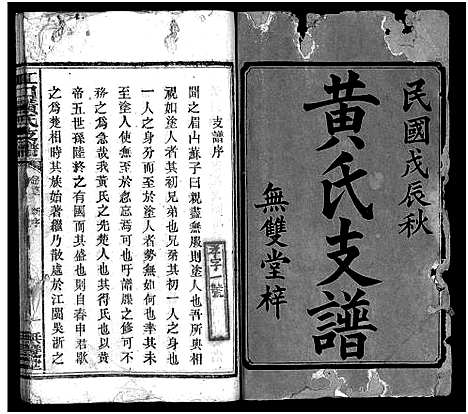 民國戊辰秋
黃氏支譜
無雙堂梓
支譜序
聞之眉山蘇子曰親盡無服則塗人也吾所與相
視如塗人者其初兄弟也兄弟其初一人之身也
一人之身分而至於塗人者勢無如何也幸其未
至塗人使無至於忽忘焉可也吁譜牒之修可不
務之為急哉我黃氏之先楚人也其得氏也以黃
帝五世孫陸終之有國而其盛也以春申君歇
之為楚相時其族始著繼乃散處於江閩吳浙之